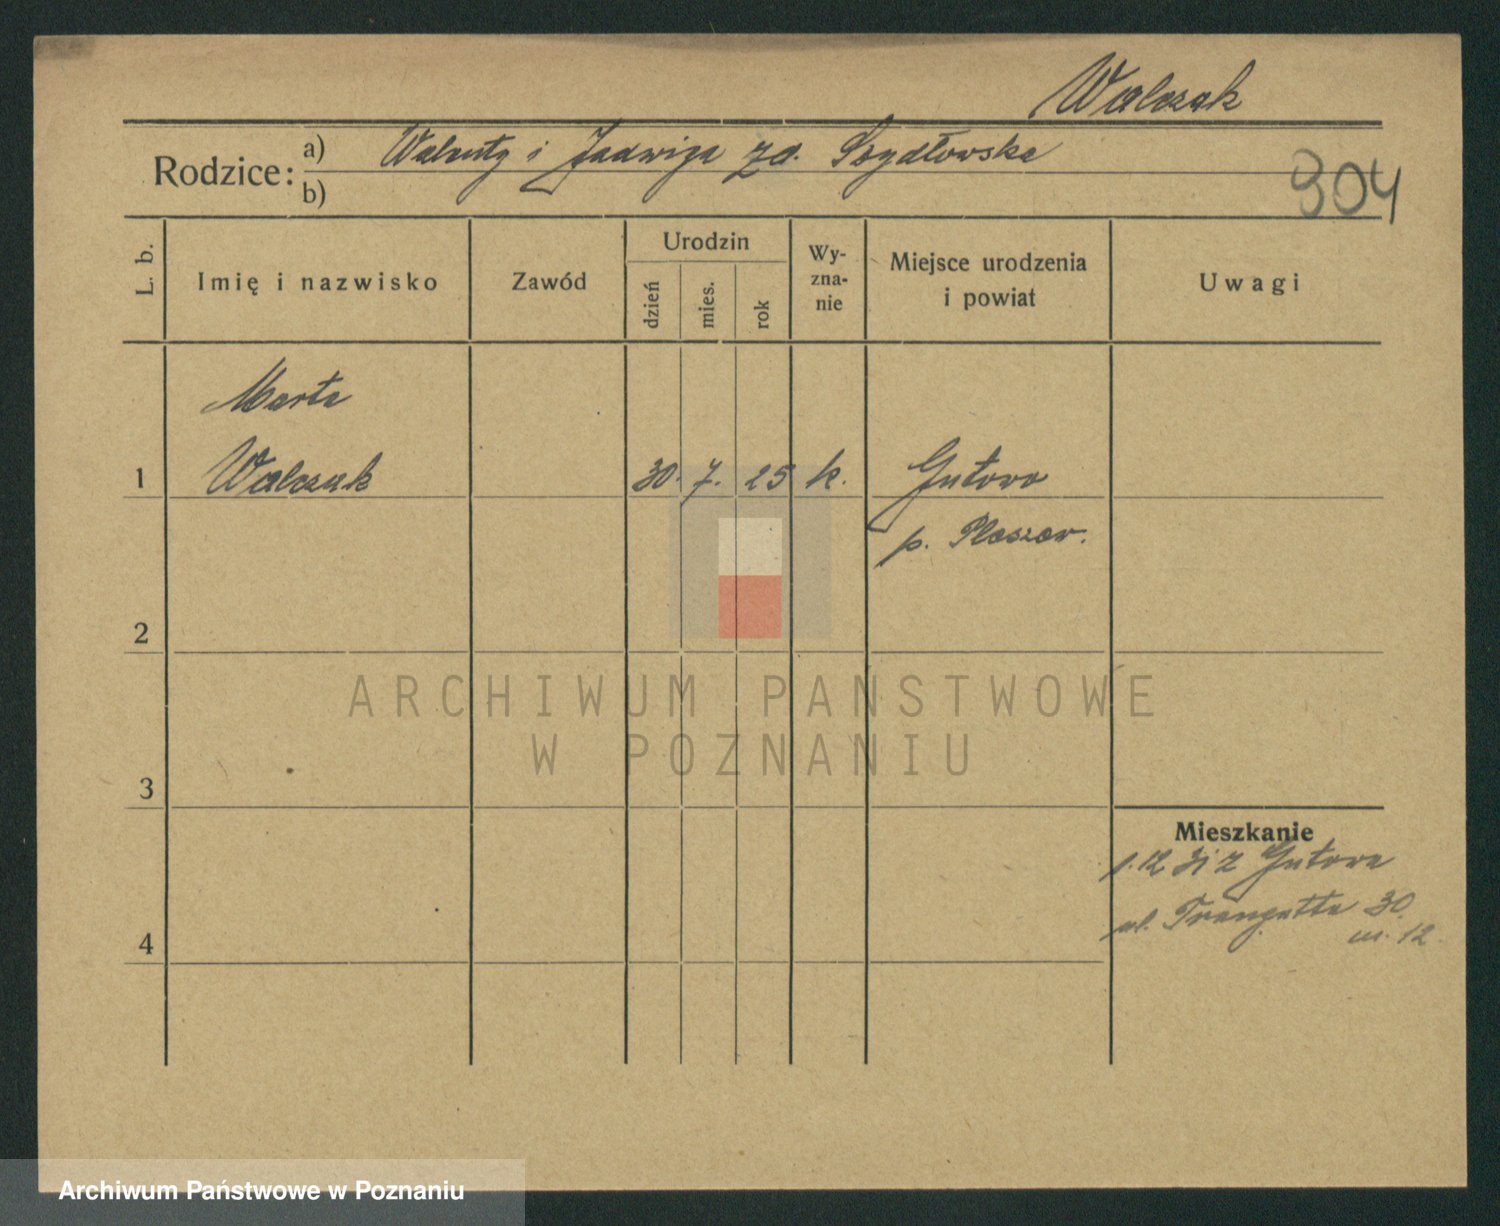 Walczak
Rodzice: a) Walenty i Jadwiga zd. Szydłowska
b)
304
L. b.
Imię i nazwisko
Zawód
Urodzin
dzień
mies.
rok
Wy-
zna-
nie
Miejsce urodzenia
i powiat
Uwagi
Marta
1 Walczak 30. 7. 25 k. Gutowo
p. Pleszew.
2
ARCHIWUM PAŃSTWOWE
W POZNANIU
3
Mieszkanie
1.12 31 z Gutowa
ul. Traugutta 30
m. 12.
4
Archiwum Państwowe w Poznaniu